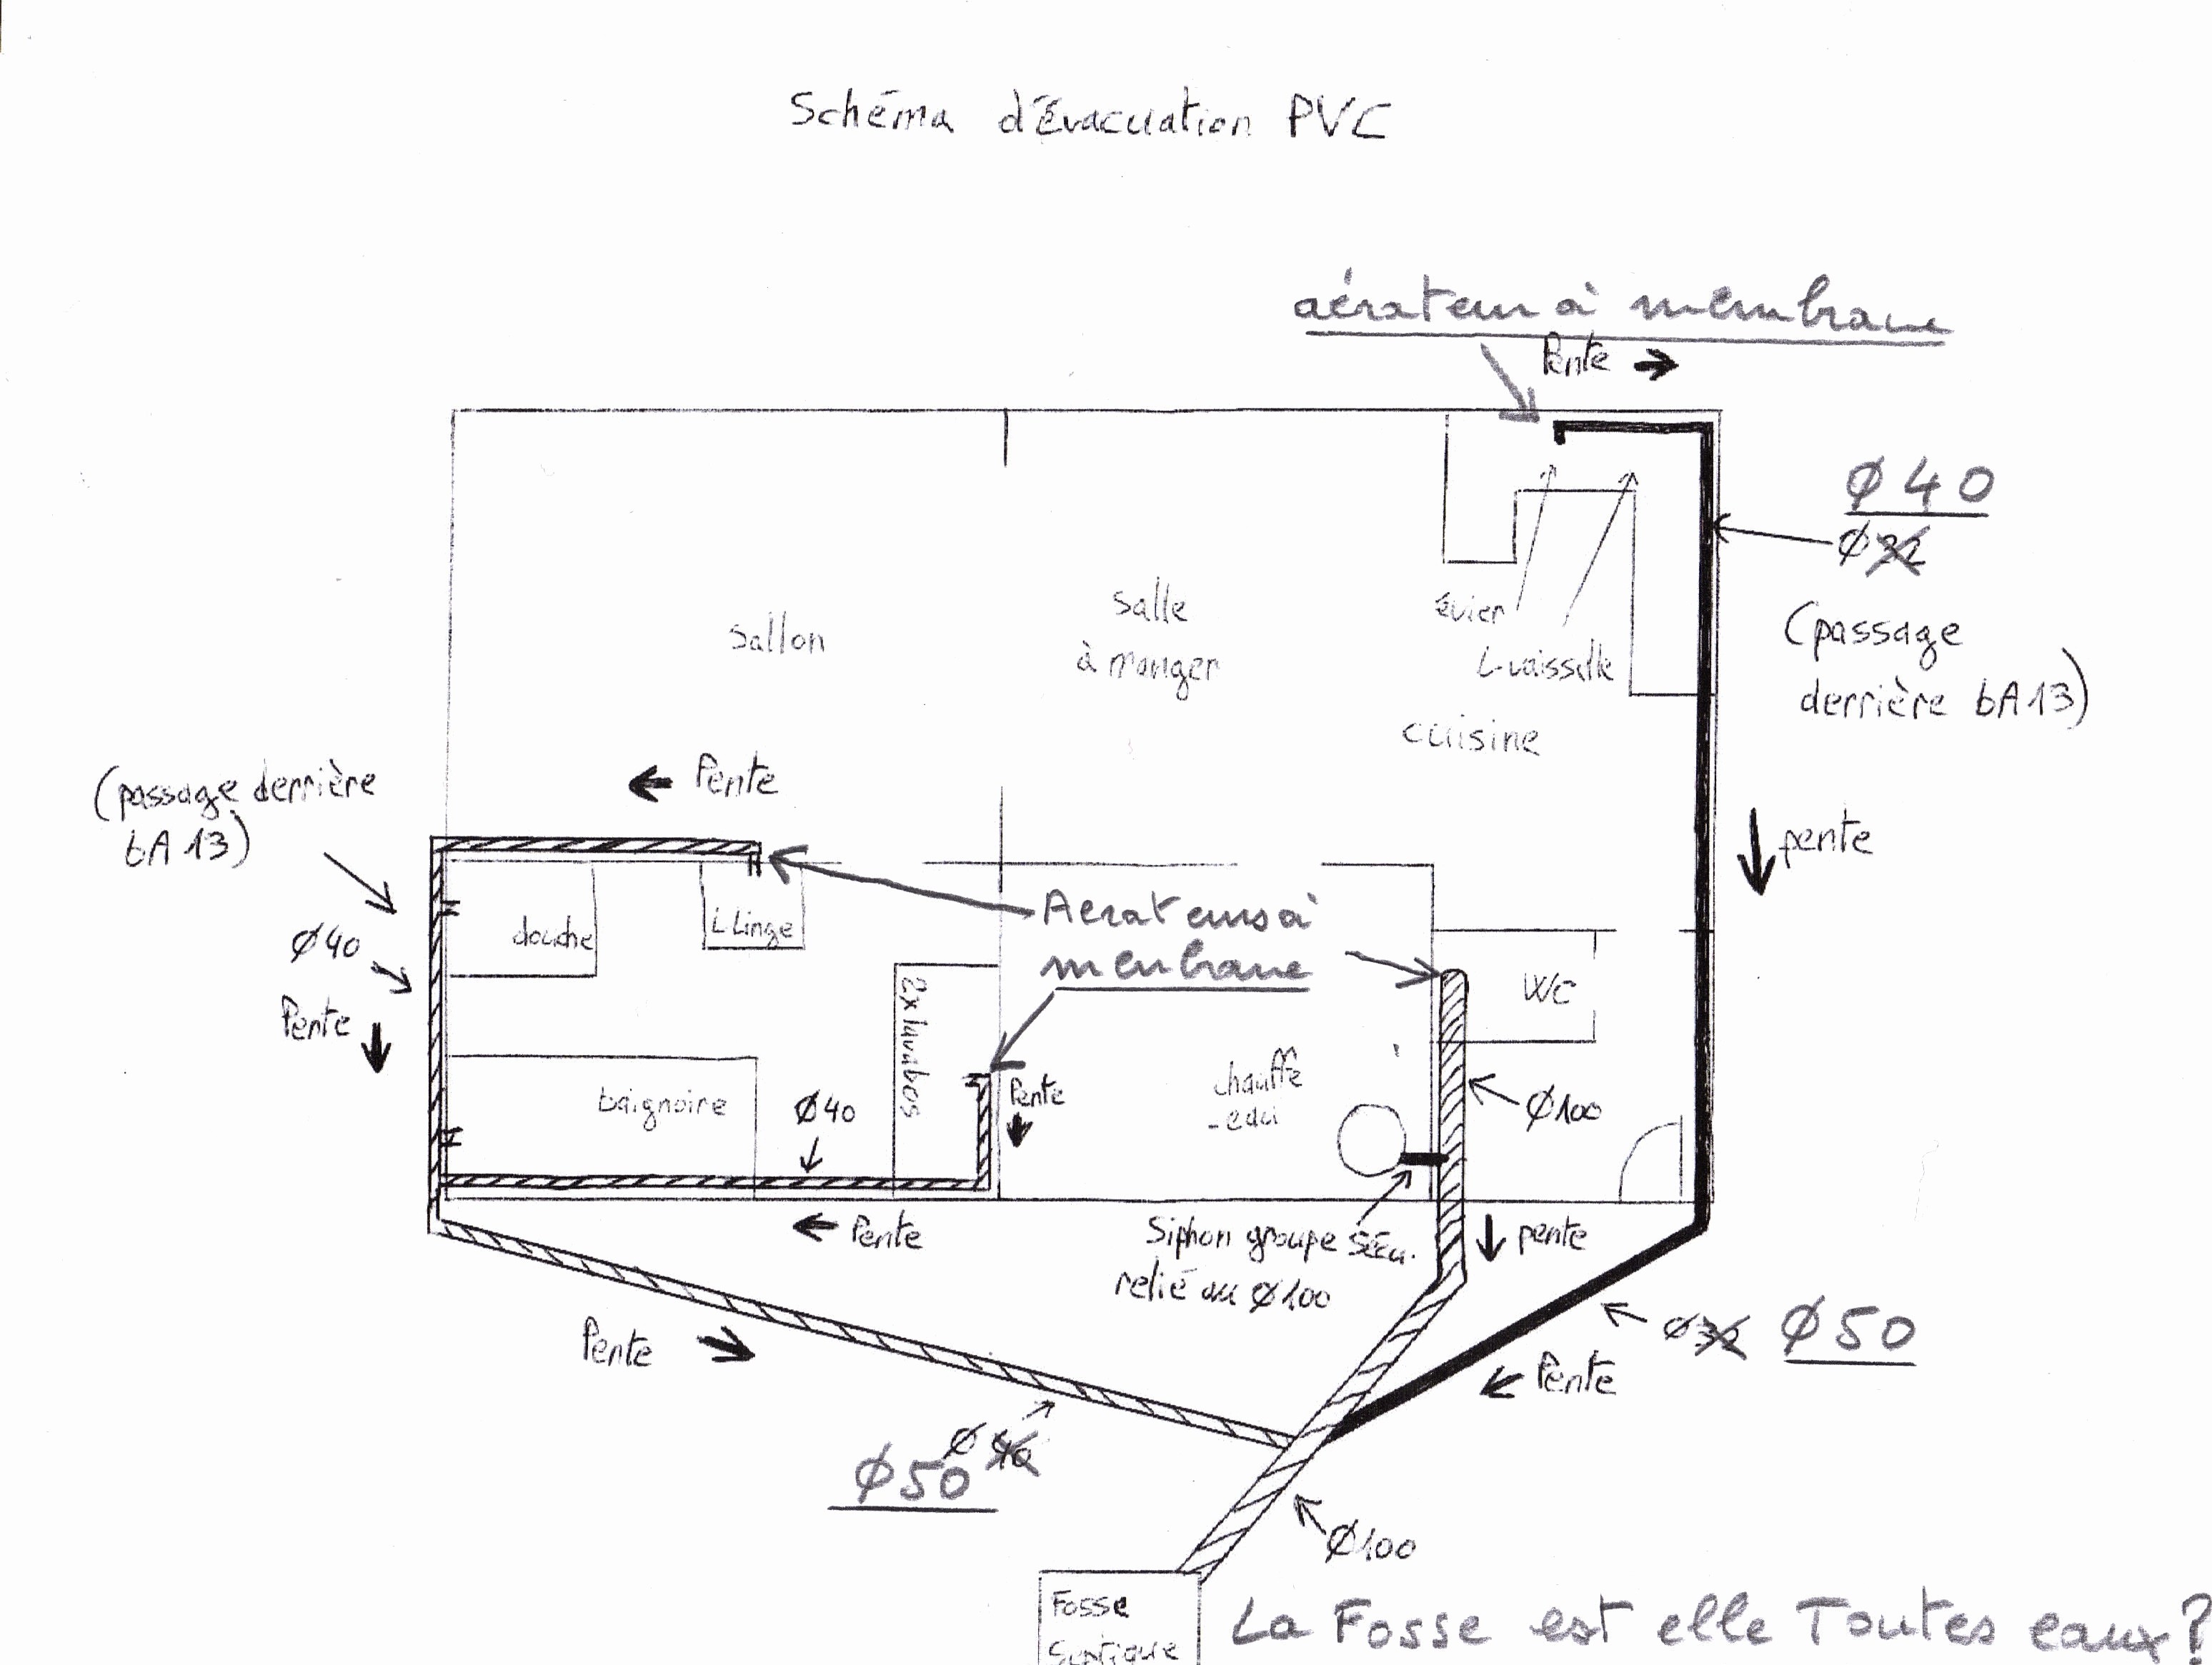 Schéma d'Évacuation PVC
aérateur à membrane
Pente
Ø 40
Ø 32
(passage
derrière bA13)
évier
L-vaisselle
cuisine
Salle
à manger
Sallon
Pente
pente
(passage derrière
bA 13)
Ø40
Pente
douche
L Linge
Aerateurs à
membrane
WC
2x lavabos
baignoire
Ø40
Pente
chauffe
-eau
Ø100
Pente
Siphon groupe Sécu.
relié au Ø100
pente
Ø32 Ø50
Pente
Pente
Ø 40
Ø50
Ø100
Fosse
Septique
La Fosse est elle Toutes eaux?